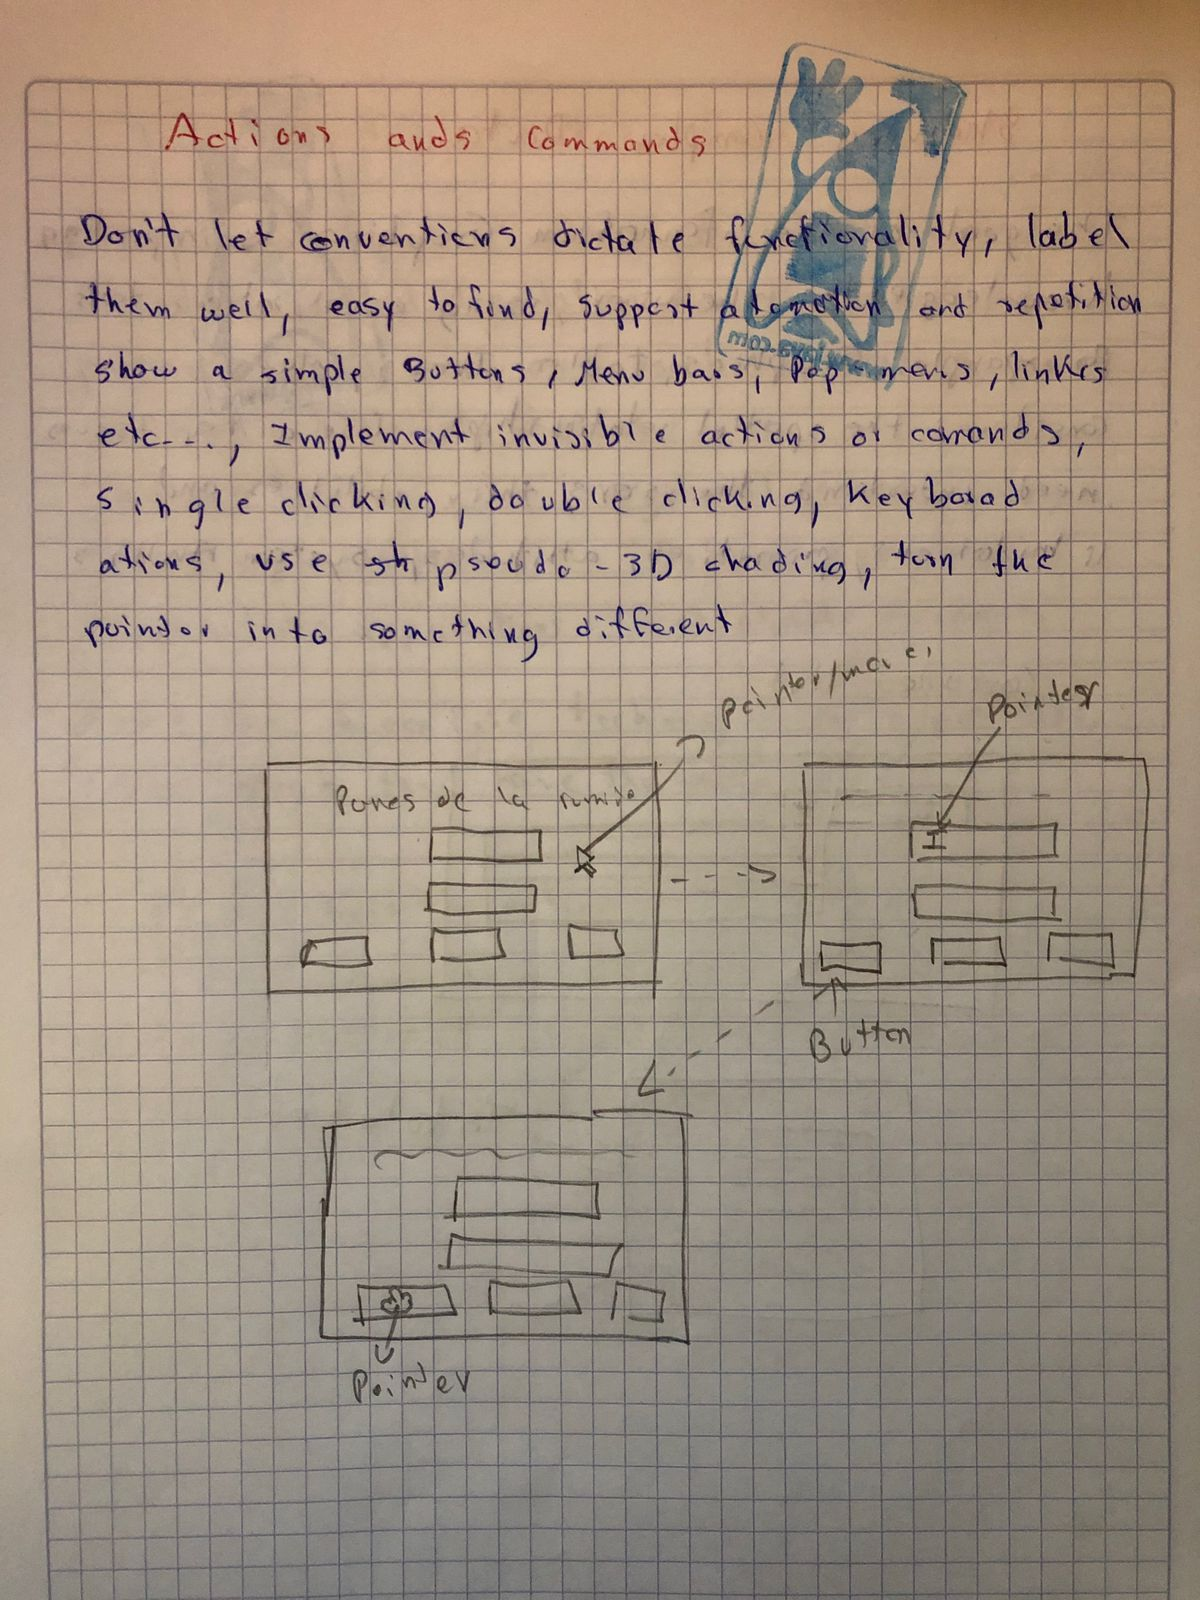 Actions ands Commands
Don't let conventions dictate functionality, label
them well, easy to find, support automation and repetition
show a simple Buttons, Menu bars, Pop-menus, linkes
etc..., Implement invisible actions or comands,
single clicking, double clicking, Keyboard
ations, use pseudo-3D chading, turn the
pointer into something different
Pointer/
Pointer
de la
Button
Pointer